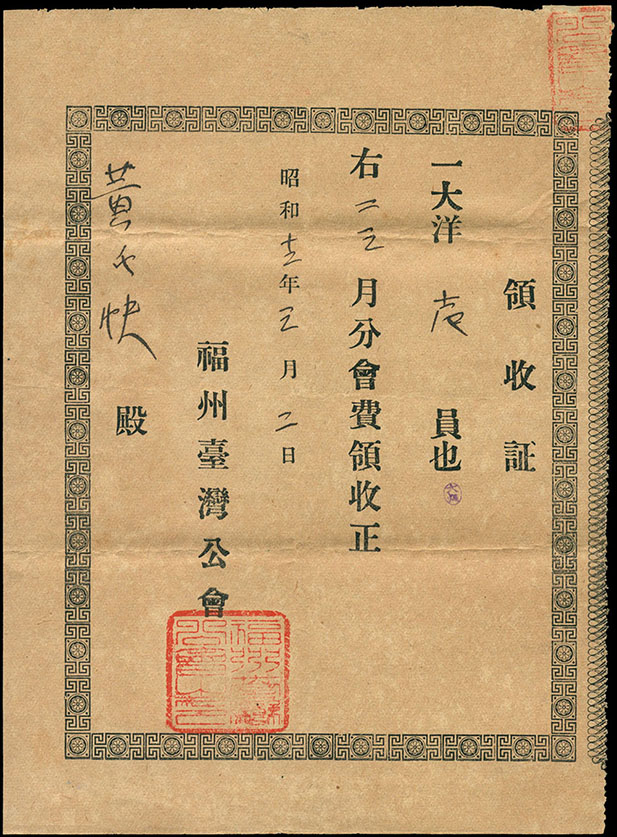 領收証
一大洋 壱 員也
右二三月分會費領收正
昭和十三年三月二日
福州臺灣公會
黃 快 殿